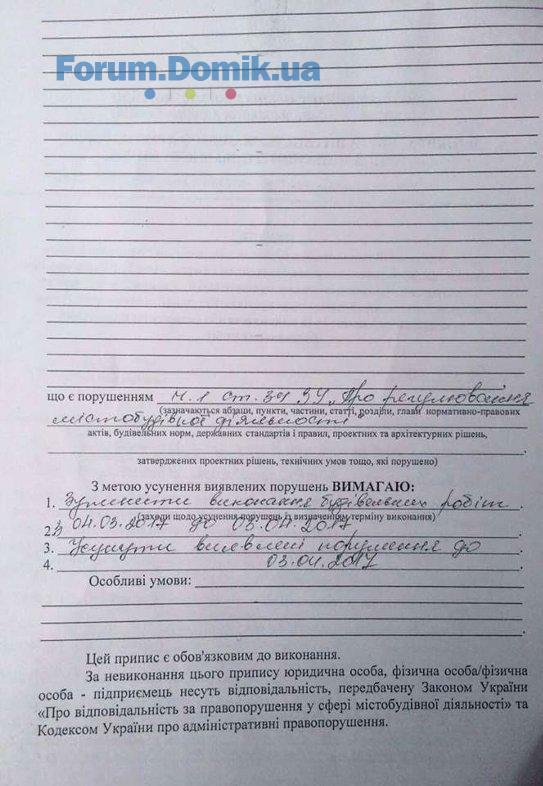 Forum.Domik.ua
що є порушенням ч.1 ст.34 ЗУ „Про регулювання
(зазначаються абзаци, пункти, частини, статті, розділи, глави нормативно-правових
містобудівної діяльності"
актів, будівельних норм, державних стандартів і правил, проектних та архітектурних рішень,
затверджених проектних рішень, технічних умов тощо, які порушено)
З метою усунення виявлених порушень ВИМАГАЮ:
1. Зупинити виконання будівельних робіт
(заходи щодо усунення порушень із визначенням терміну виконання)
2. з 04.03.2017 до 03.04.2017
3. Усунути виявлені порушення до
4. 03.04.2017
Особливі умови:
Цей припис є обов'язковим до виконання.
За невиконання цього припису юридична особа, фізична особа/фізична
особа - підприємець несуть відповідальність, передбачену Законом України
«Про відповідальність за правопорушення у сфері містобудівної діяльності» та
Кодексом України про адміністративні правопорушення.